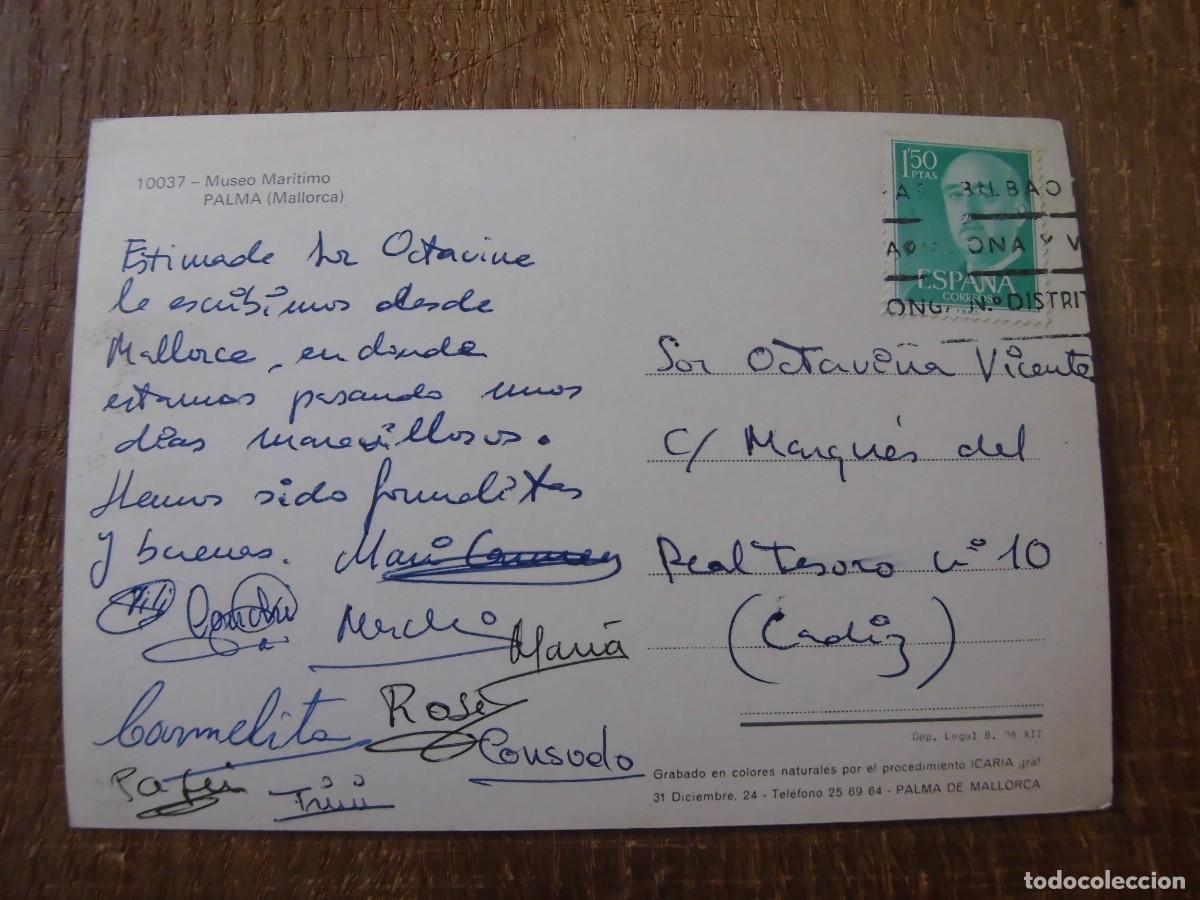 10037 – Museo Marítimo
PALMA (Mallorca)
1'50
PTAS
ESPAÑA
CORREOS
BILBAO
ONA Y V
ONG. N.º DISTRIT
Estimada Sor Octavina
le escribimos desde
Mallorca, en donde
estamos pasando unos
días maravillosos.
Hemos sido formalitas
y buenas. Mari Carmen
Pili Conchi
Merche María
Carmelita Rosi
Consuelo
Pafui Trini
Sor Octaviña Vicente
C/ Marqués del
Real Tesoro nº 10
(Cadiz)
Dep. Legal B. 96 XII
Grabado en colores naturales por el procedimiento ICARIA graf
31 Diciembre, 24 - Teléfono 25 69 64 - PALMA DE MALLORCA
todocoleccion